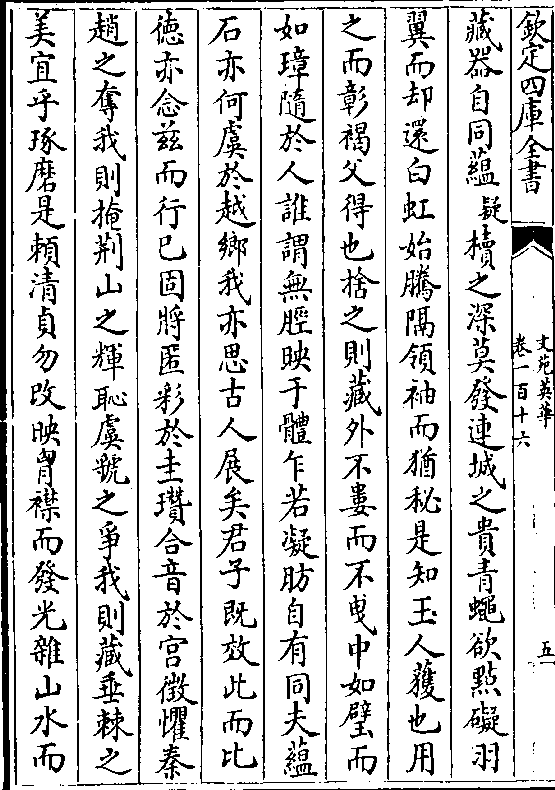 欽定四庫全書
文苑英華
卷一百十六
五
藏器自同蘊疑櫝之深莫發連城之貴青蠅欲點礙羽
翼而却還白虹始騰隔領袖而猶秘是知玉人蒦也用
之而彰褐父得也捨之則藏外不婁而不曵中如璧而
如璋隨於人誰謂無脛映于體乍若凝肪自有同夫蘊
石亦何虞於越鄉我亦思古人展矣君子既效此而比
徳亦念兹而行已固將匿彩於圭瓚合音於宫徴懼秦
趙之奪我則掩荆山之輝恥虞虢之爭我則藏垂棘之
美宜乎琢磨是頼清貞勿改映胷襟而發光雜山水而